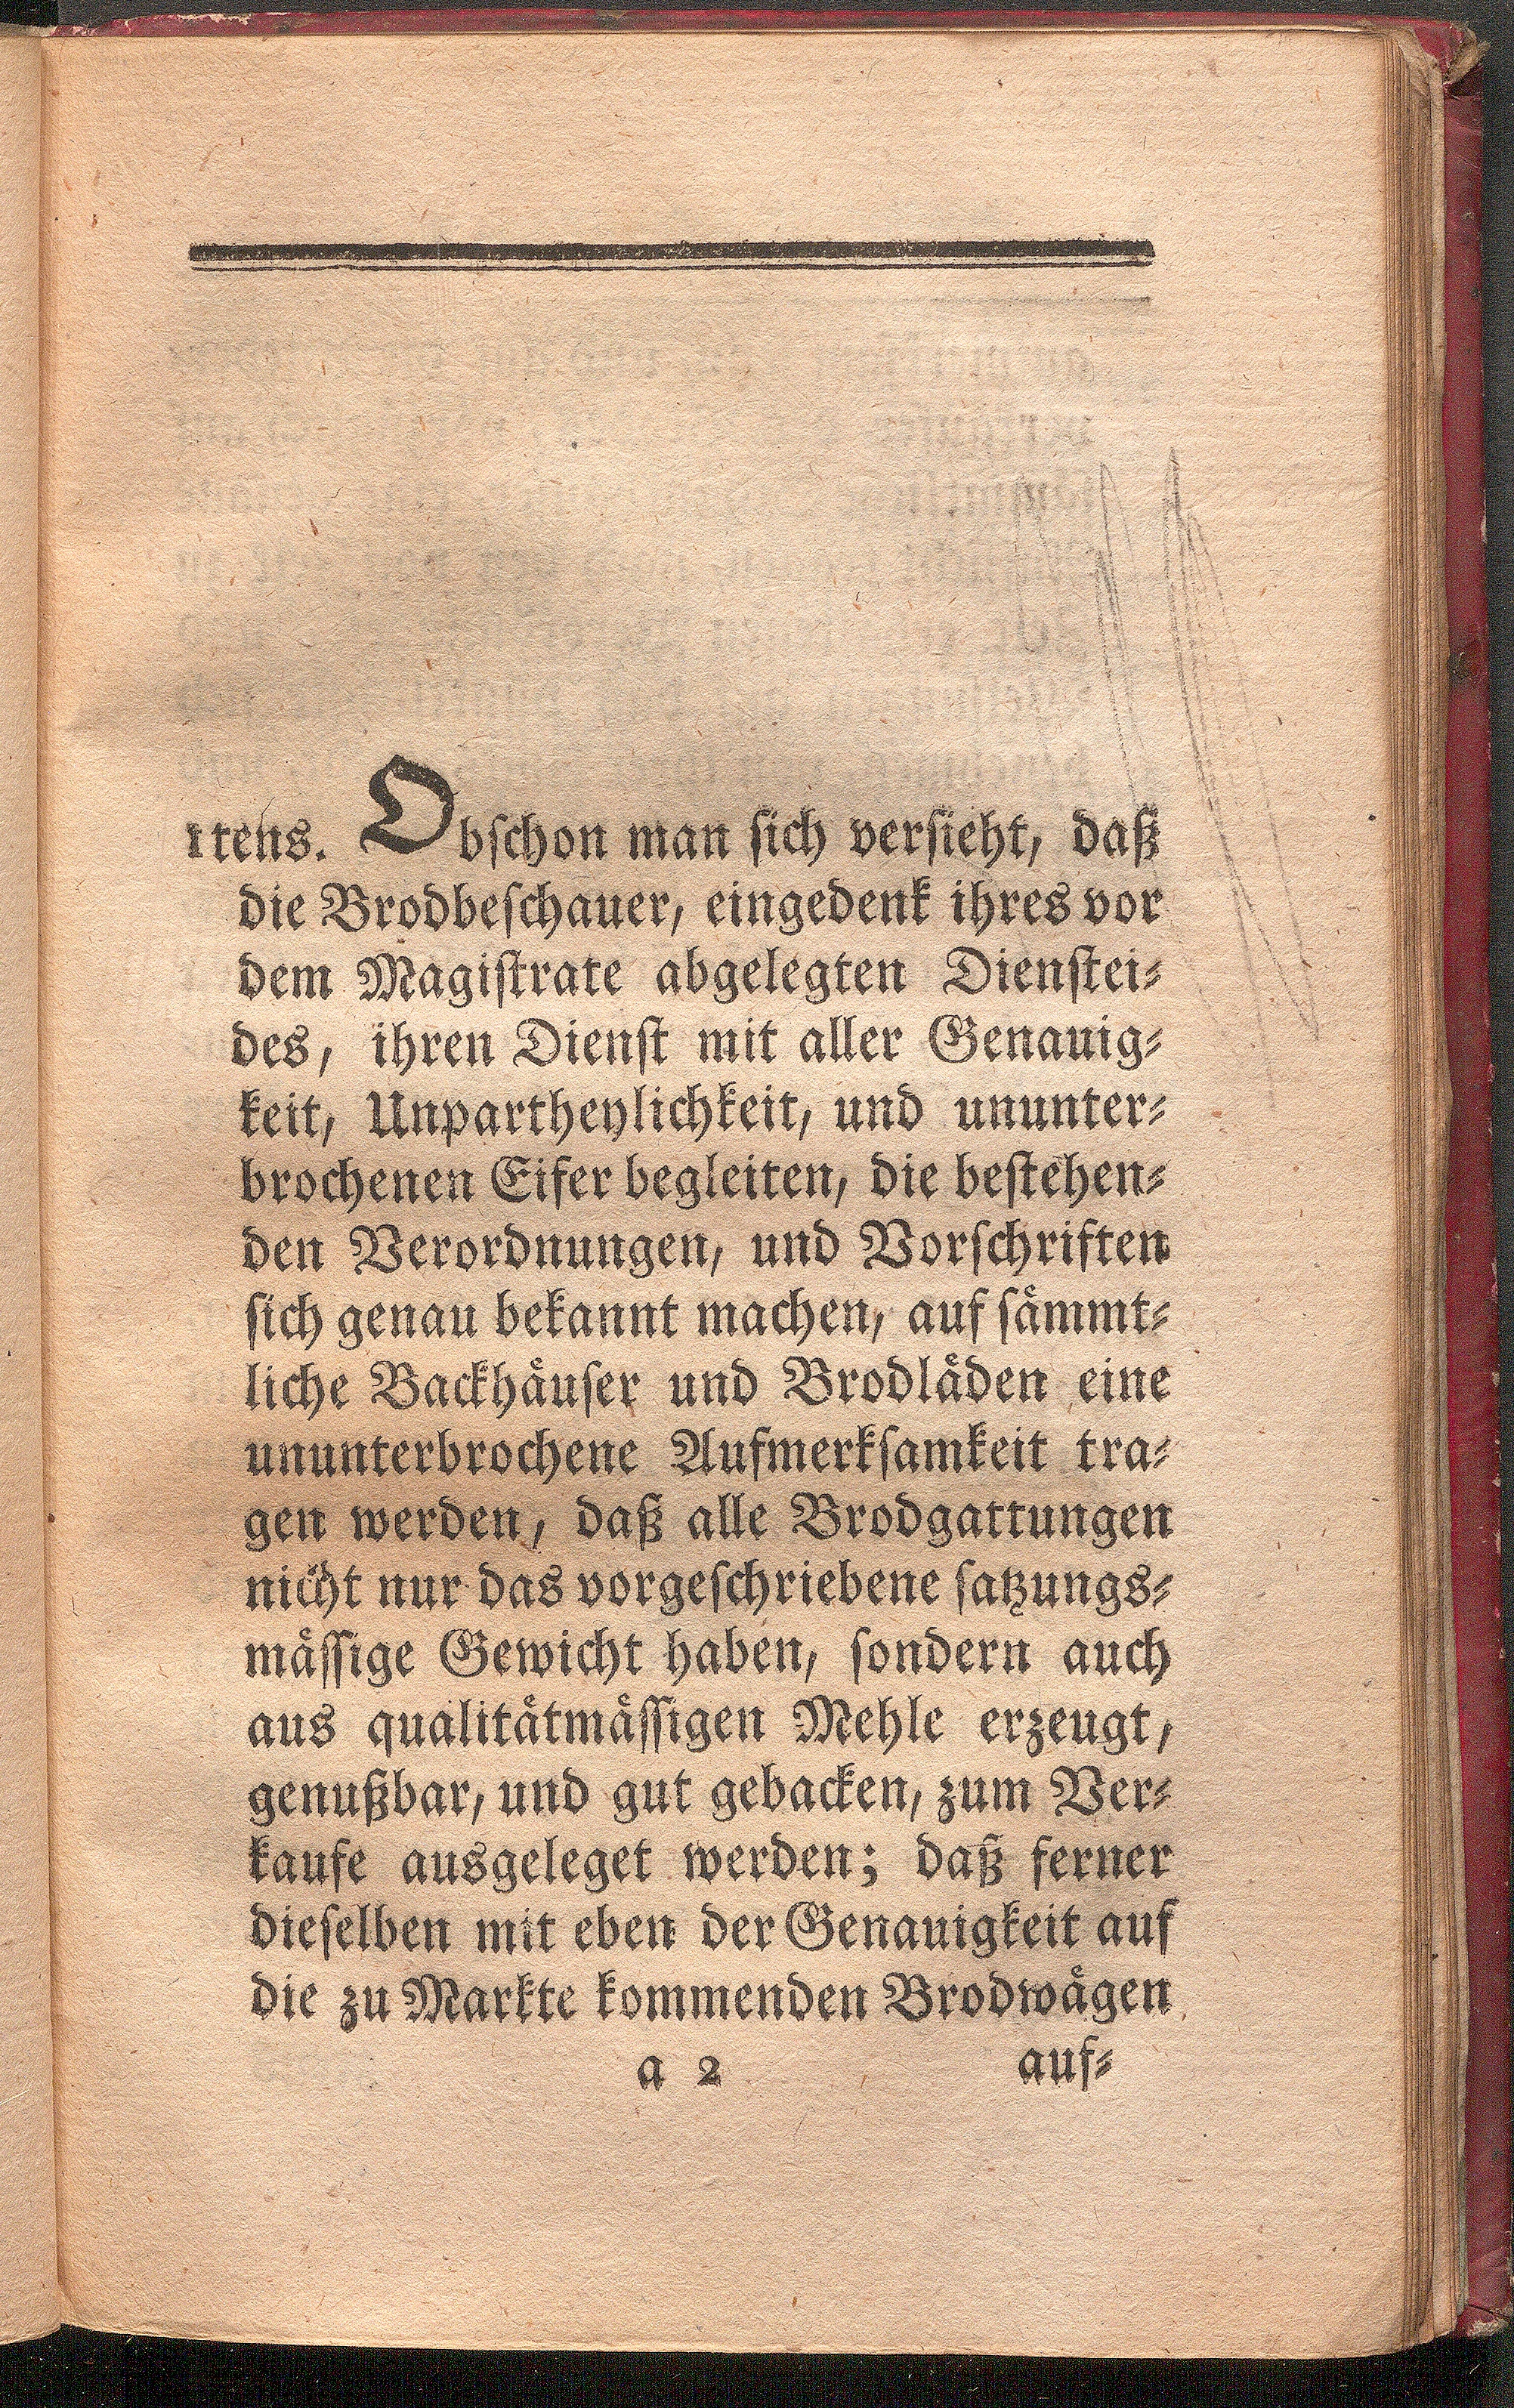 1tens. Obschon man sich versieht, daß
die Brodbeschauer, eingedenk ihres vor
dem Magistrate abgelegten Dienstei-
des, ihren Dienst mit aller Genauig-
keit, Unpartheylichkeit, und ununter-
brochenen Eifer begleiten, die bestehen-
den Verordnungen, und Vorschriften
sich genau bekannt machen, auf sämmt-
liche Backhäuser und Brodläden eine
ununterbrochene Aufmerksamkeit tra-
gen werden, daß alle Brodgattungen
nicht nur das vorgeschriebene satzungs-
mässige Gewicht haben, sondern auch
aus qualitätmässigen Mehle erzeugt,
genußbar, und gut gebacken, zum Ver-
kaufe ausgeleget werden; daß ferner
dieselben mit eben der Genauigkeit auf
die zu Markte kommenden Brodwägen
a 2 auf-